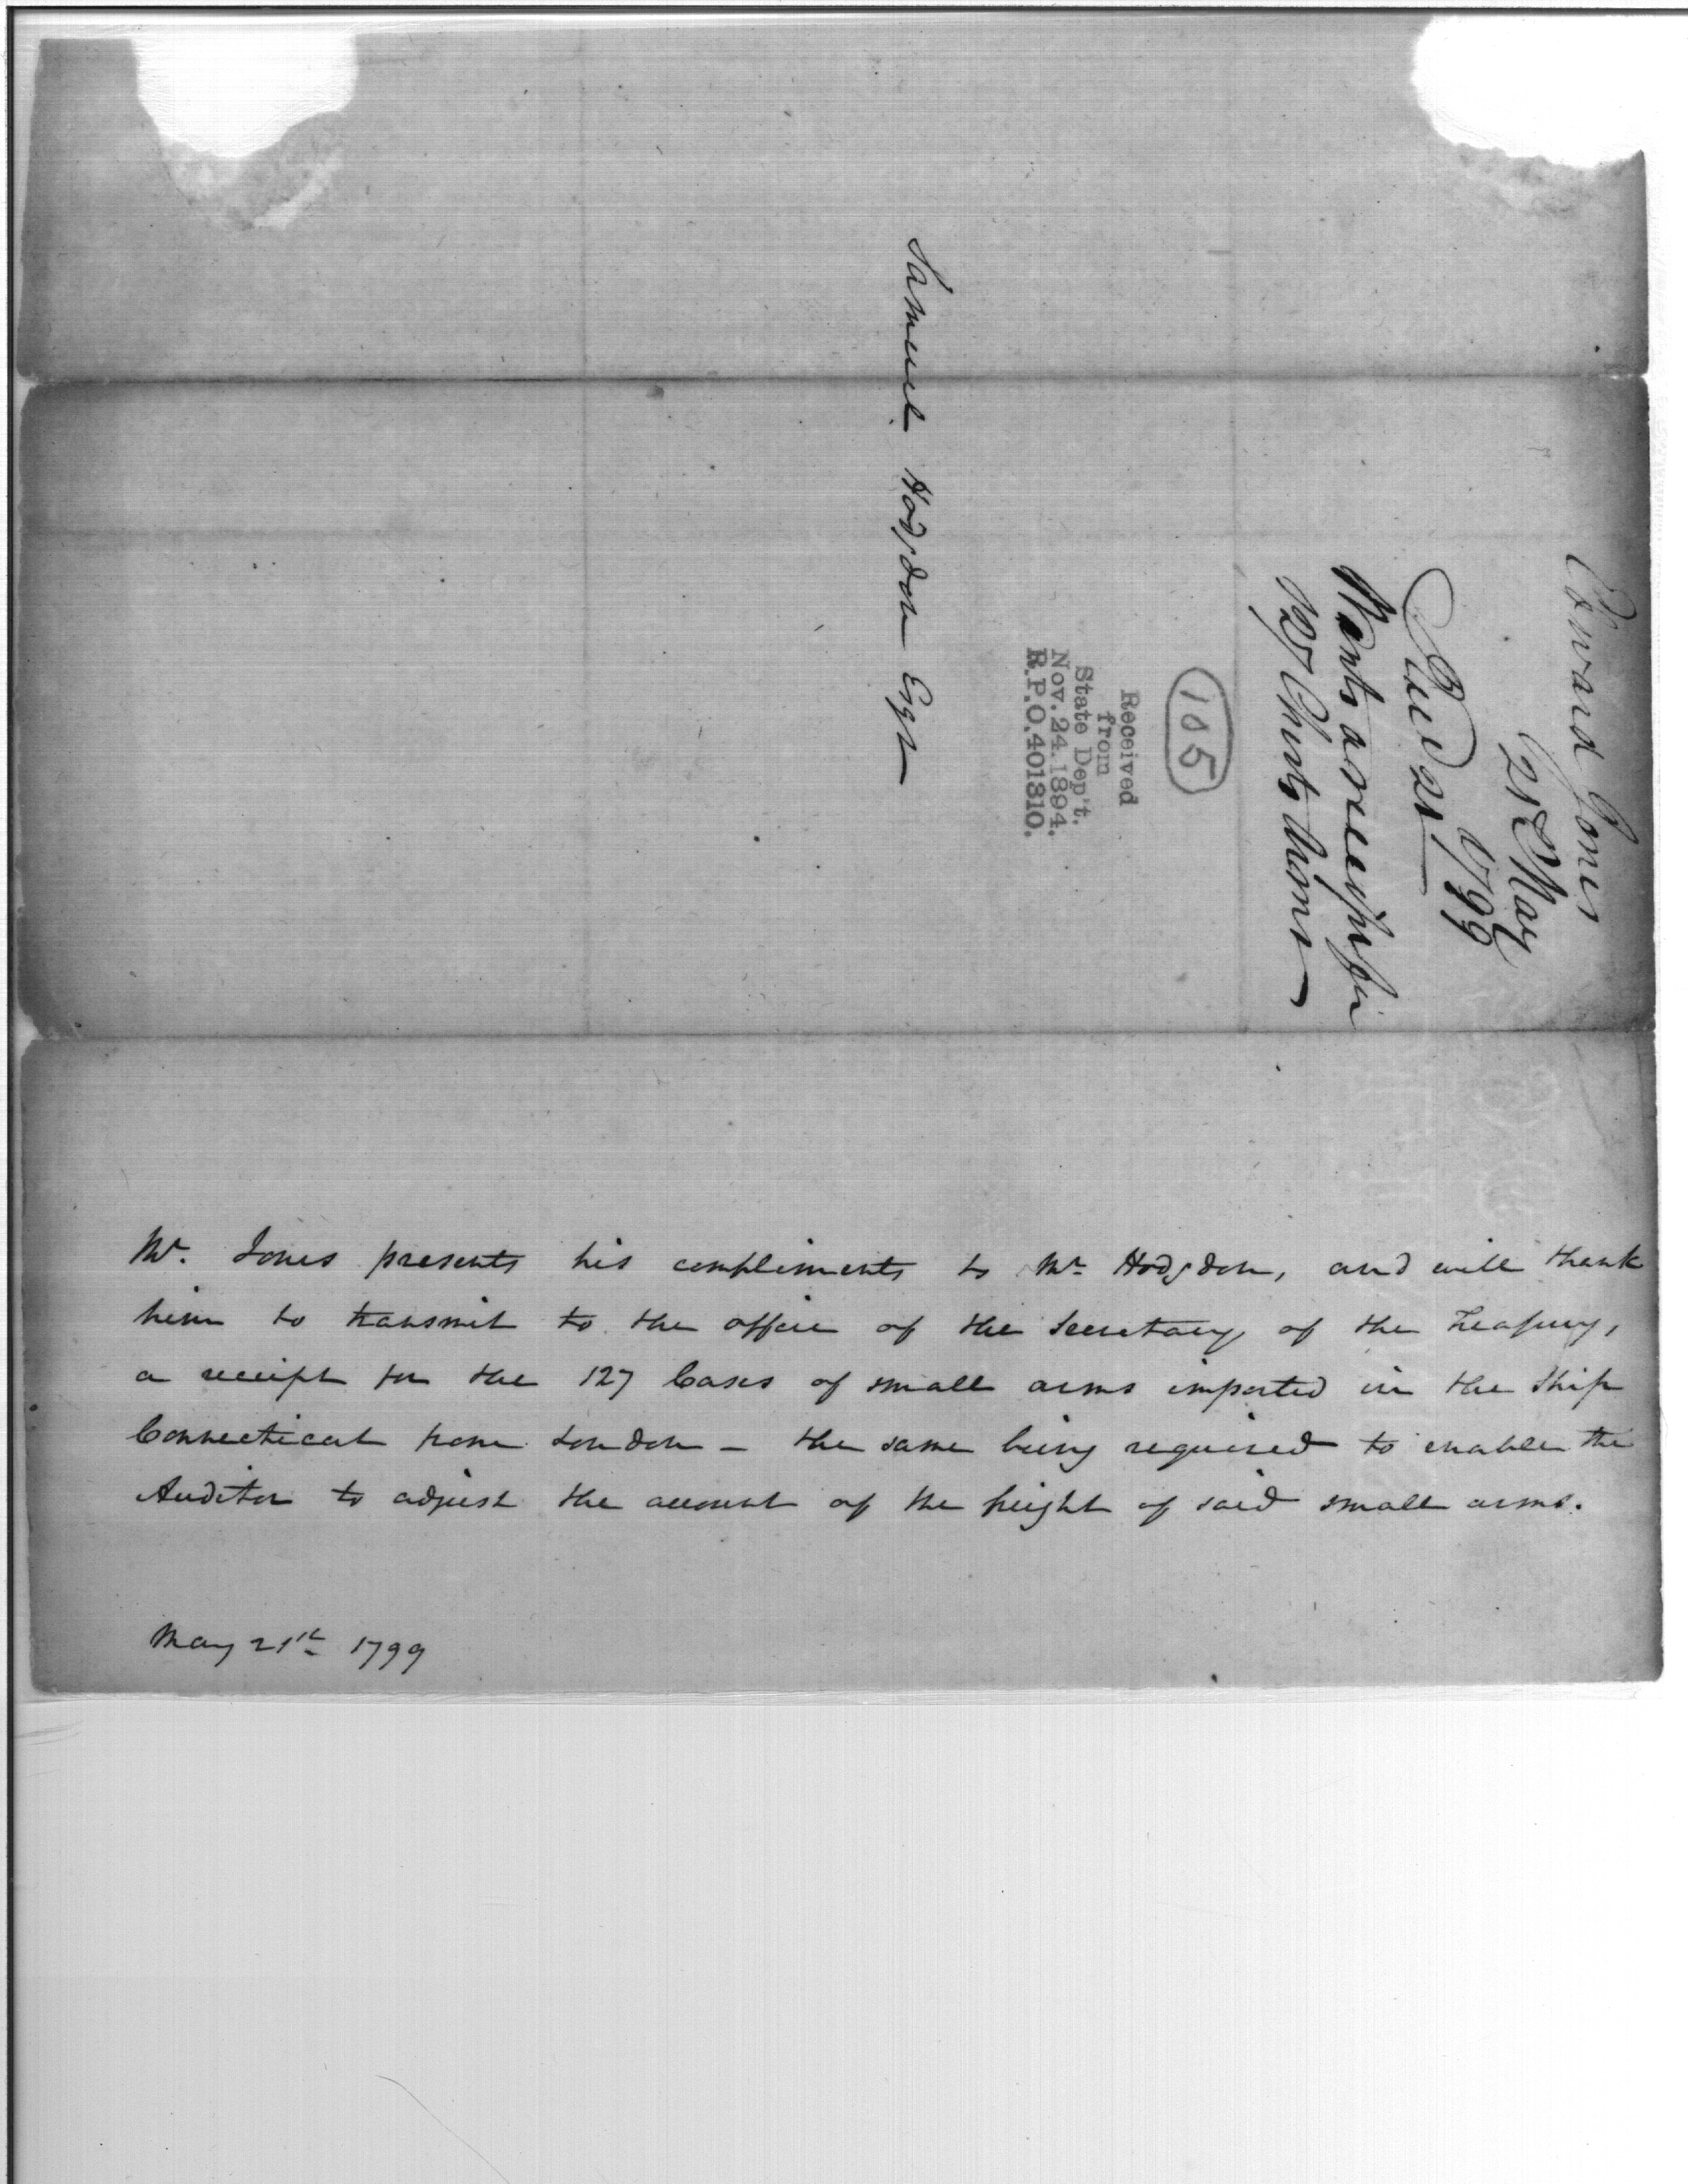 Edward Jones
21st May
1799
Recd 21st
Wants a receipt for
127 Chests Arms
105
Received
from
State Dep't.
Nov. 24. 1894.
R.P.O. 401310.
Samuel Hodgdon Esqr
Mr. Jones presents his compliments to Mr. Hodgdon, and will thank
him to transmit to the office of the Secretary of the Treasury,
a receipt for the 127 Cases of small arms imported in the Ship
Connecticut from London – the same being required to enable the
Auditor to adjust the account of the freight of said small arms.
May 21st 1799